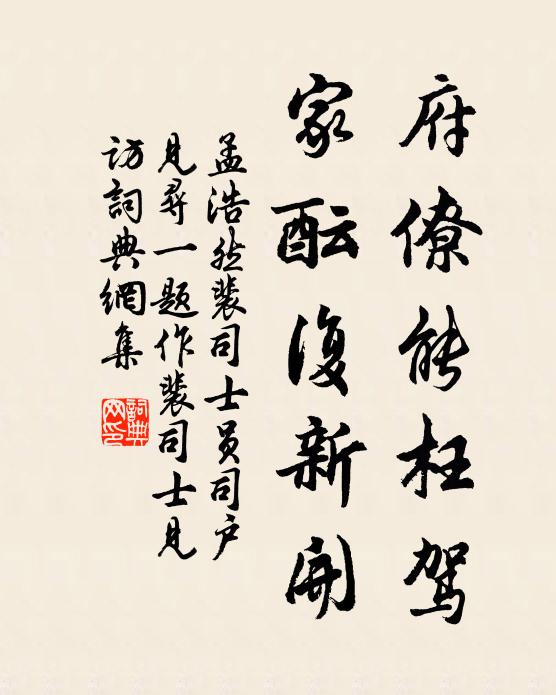 府僚能枉驾
家酝復新開
孟浩然裴司士员司户
見尋一题作裴司士見
访詞典網集
詞典网印